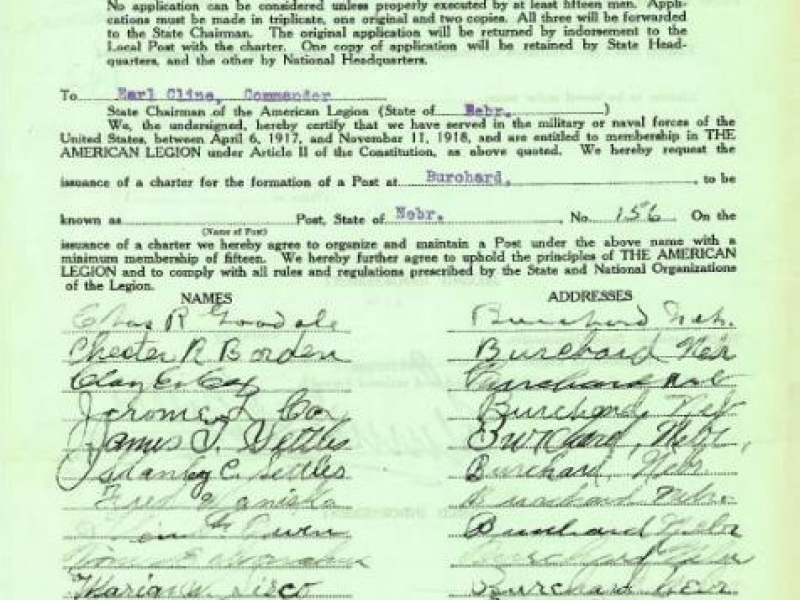 No application can be considered unless properly executed by at least fifteen men. Appli-
cations must be made in triplicate, one original and two copies. All three will be forwarded
to the State Chairman. The original application will be returned by indorsement to the
Local Post with the charter. One copy of application will be retained by State Head-
quarters, and the other by National Headquarters.
To Earl Cline, Commander
State Chairman of the American Legion (State of Nebr. )
We, the undersigned, hereby certify that we have served in the military or naval forces of the
United States, between April 6, 1917, and November 11, 1918, and are entitled to membership in THE
AMERICAN LEGION under Article II of the Constitution, as above quoted. We hereby request the
issuance of a charter for the formation of a Post at Burchard, , to be
known as Post, State of Nebr. , No. 156 On the
(Name of Post)
issuance of a charter we hereby agree to organize and maintain a Post under the above name with a
minimum membership of fifteen. We hereby further agree to uphold the principles of THE AMERICAN
LEGION and to comply with all rules and regulations prescribed by the State and National Organizations
of the Legion.
NAMES ADDRESSES
Chas R Goodale Burchard Neb.
Chester R Borden Burchard Neb
Clay Cox Burchard Neb
Jerome L Cox Burchard, Neb
James T. Settles Burchard, Nebr.
Stanley C. Settles Burchard, Nebr.
Fred Burchard Nebr.
Owen Burchard Nebr
Burchard
Marion Sisco Burchard Nebr